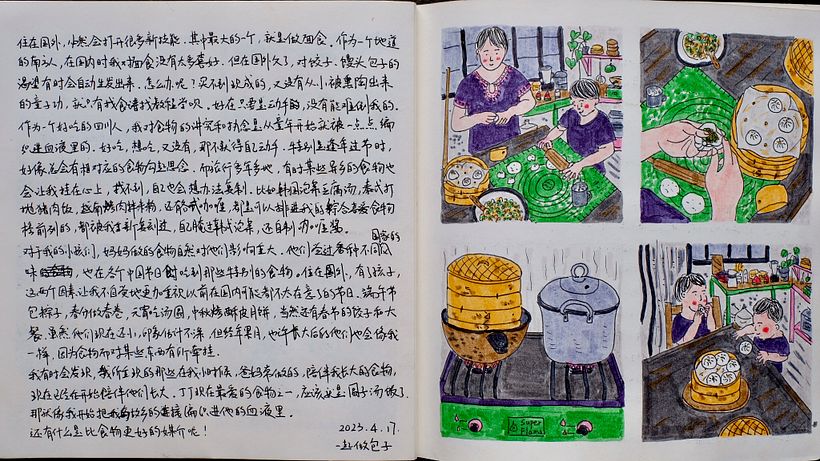 住在国外，必然会打开很多新技能，其中最大的一个，就是做面食。作为一个地道
的南方人，在国内时我对面食没有太多喜好。但在国外久了，对饺子、馒头包子的
渴望有时会自动生发出来。怎么办呢？买不到现成的，又没有从小被熏陶出来
的童子功，就只有找食谱找教程学习。好在只要是动手的，没有能难倒我的。
作为一个好吃的四川人，我对食物的讲究和执念是从童年开始就被一点点编
织进血液里的。好吃，想吃，又没有，那不就得自己动手。特别是逢年过节时，
好像总会有相对应的食物勾起思念。而旅行多年多地，有时某些异乡的食物也
会让我挂在心上，找不到，自己也会想办法复制。比如韩国泡菜豆腐汤，泰式打
抛猪肉饭，越南烤肉拌粉，还有咖喱，都是可以排进我的食物
榜前列的，都被我重新复刻过，自己腌过韩式泡菜，还自制咖喱酱。
对于我的小孩们，妈妈做的食物自然对他们影响重大。他们尝过各种不同国家的风
味，也在各个中国节日时吃到那些特别的食物。住在国外，有了孩子，
这两个因素让我不自觉地更加重视以前在国内可能都不太在意了的节日。端午节
包粽子，春分做春卷，元宵包汤圆，中秋烤酥皮月饼，当然还有春节的饺子和大
餐。虽然他们现在还小，印象估计不深，但经年累月，也许长大后的他们也会像我
一样，因为食物而对某些东西有所牵挂。
我有时会发现，我所重现的那些在我小时候，爸妈爱做的，陪伴我长大的食物，
现在已经在开始陪伴他们长大。丁丁现在最爱的食物之一，应该就是圆子汤饭了。
那就像我开始把我故乡的连接编织进他的血液里。
还有什么是比食物更好的媒介呢！
2023.4.17.
一起做包子
Super
Flame